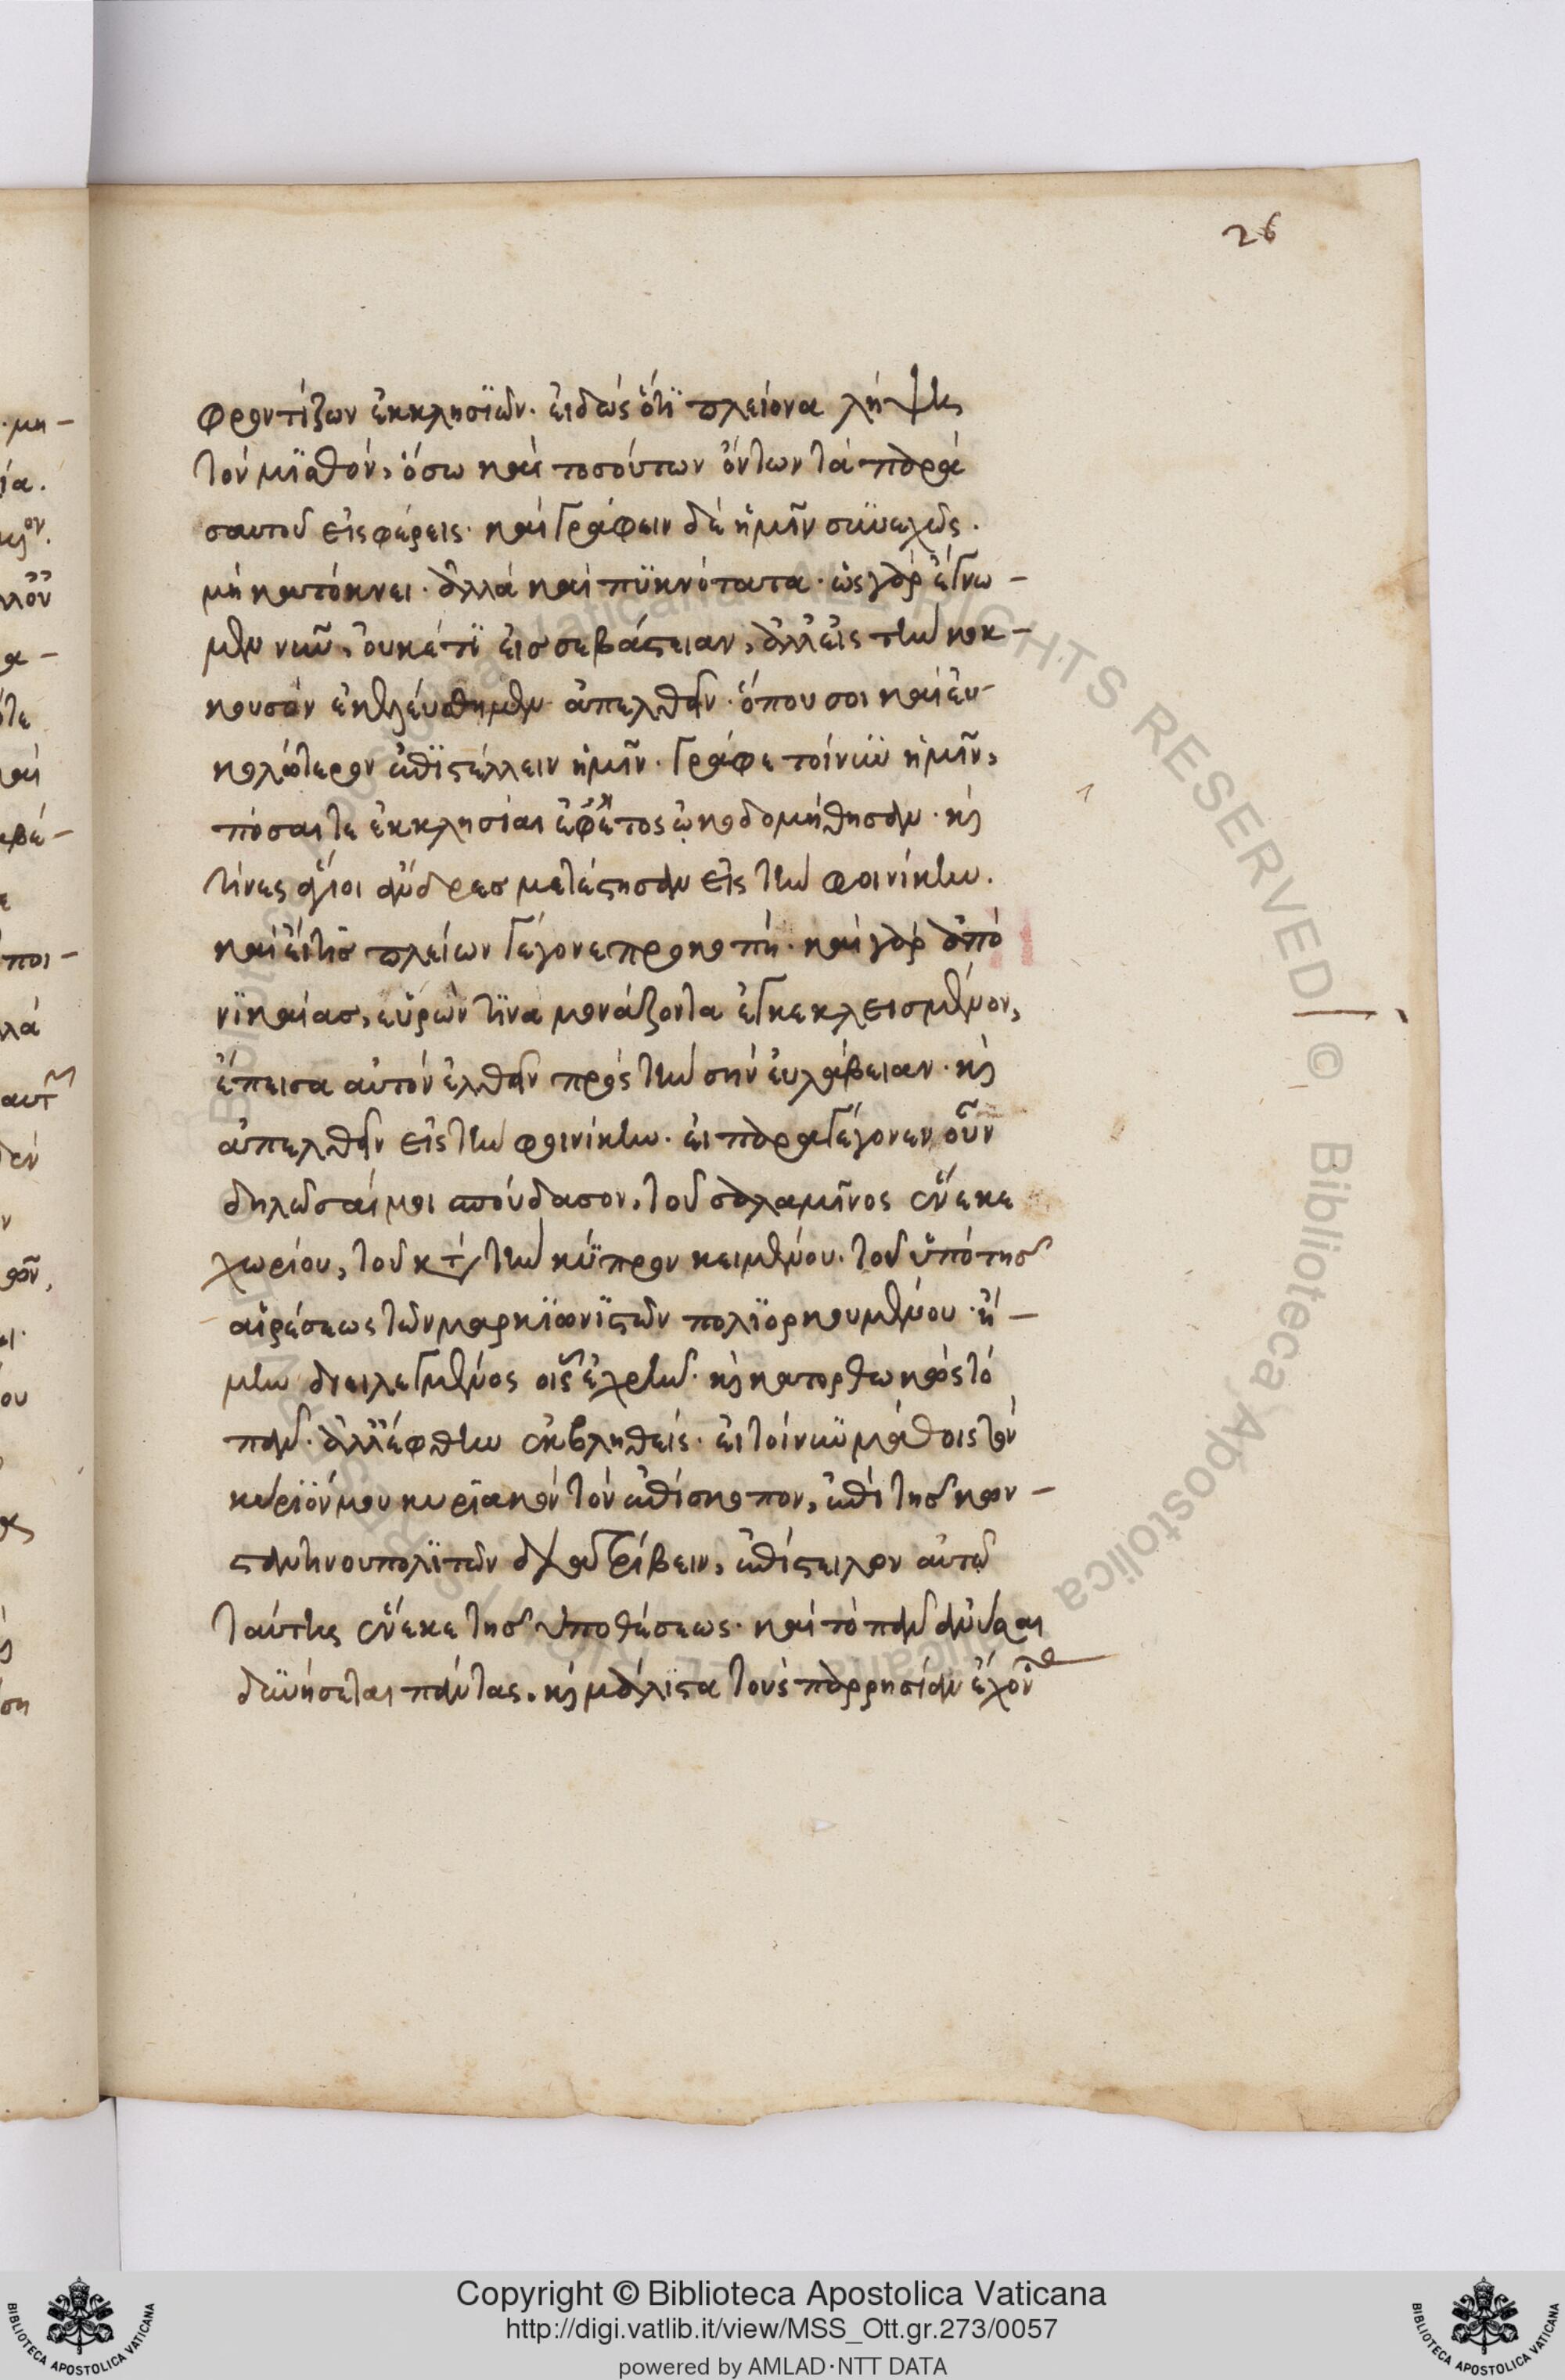 26
φροντίζων ἐκκλησϊῶν· εἰδὼς ὅτϊ πλείονα λήψῃ
τὸν μϊσθόν, ὅσω καὶ τοσούτων ὄντων τὰ παρὰ
σαυτοῦ εἰσφέρεις· καὶ γράφειν δὲ ἡμῖν συνεχῶς·
μὴ κατόκνει· ἀλλὰ καὶ πϋκνότατα· ὡς γὰρ ἔγνω-
μεν νῦν, οὐκέτϊ εἰς σεβάστειαν, ἀλλ' εἰς τὴν κοκ-
κουσὸν ἐκελεύσθημεν ἀπελθεῖν· ὅπου σοι καὶ εὐ-
κολώτερον ἐπϊστέλλειν ἡμῖν· γράφε τοίνυν ἡμῖν,
πόσαι τε ἐκκλησίαι ἐφ' ἔτος ὠκοδομήθησαν· καὶ
τίνες ἅγιοι ἄνδρες μετέστησαν εἰς τὴν φοινίκην.
καὶ εἴ τις πλείων γέγονε προκοπή· καὶ γὰρ ἀπὸ
νϊκαίας, εὑρών τϊνα μονάζοντα ἐγκεκλεισμένον,
ἔπεισα αὐτὸν ἐλθεῖν πρὸς τὴν σὴν εὐλάβειαν· καὶ
ἀπελθεῖν εἰς τὴν φοινίκην· εἰ παραγέγονεν οὖν
δηλῶσαί μοι σπούδασον, τοῦ σαλαμῖνος ἕνεκε
χωρίου, τοῦ κατὰ τὴν κύπρον κειμένου· τοῦ ὑπὸ τῆς
αἱρέσεως τῶν μαρκϊωνϊστῶν πολϊορκουμένου· ἤ-
μην διειλεγμένος οἷς ἐχρῆν· καὶ κατορθωκὼς τὸ
πᾶν· ἀλλ' ἔφθην ἐκβληθείς· εἰ τοίνυν μάθοις τὸν
κύριόν μου κυριακὸν τὸν ἐπίσκοπον, ἐπὶ τῆς κων-
σταντινουπολϊτῶν διατρίβειν, ἐπίστειλον αὐτῶ
ταύτης ἕνεκε τῆς ὑποθέσεως· καὶ τὸ πᾶν ἀνύσαι
δυνήσεται πάντας, καὶ μάλϊστα τοὺς παρρησίαν ἔχοντ
Copyright © Biblioteca Apostolica Vaticana
http://digi.vatlib.it/view/MSS_Ott.gr.273/0057
powered by AMLAD·NTT DATA